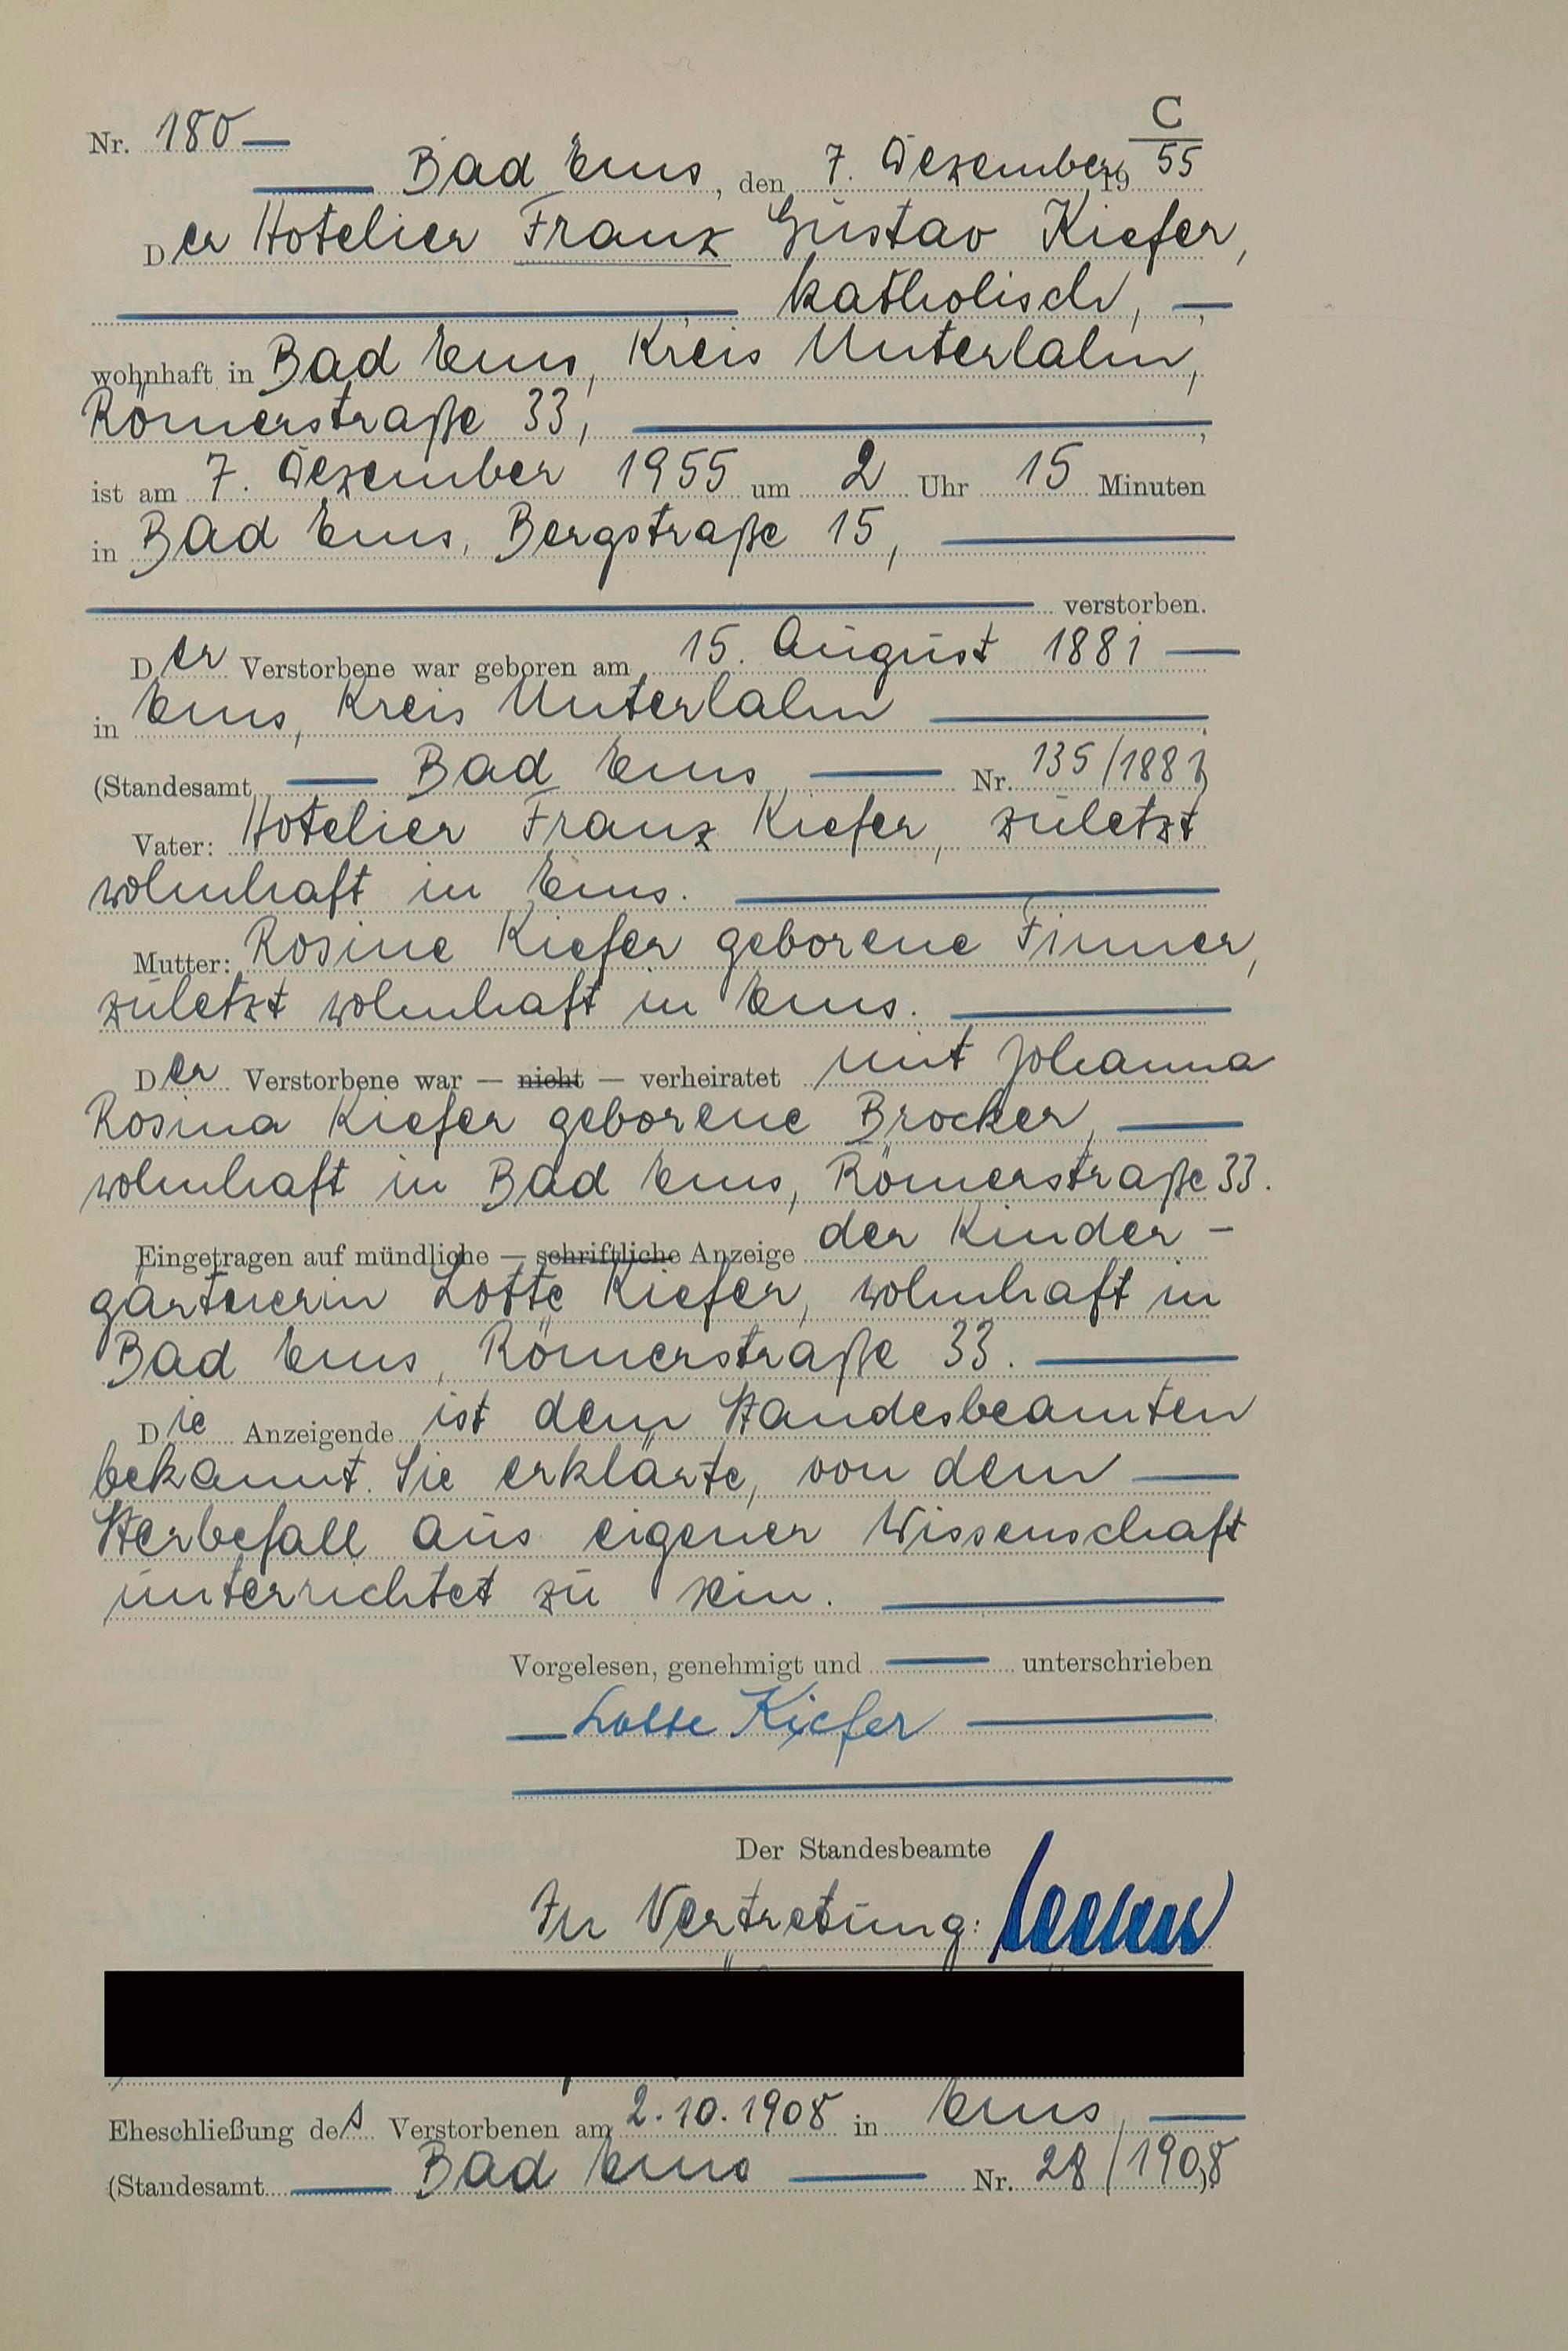 C
Nr. 180
Bad Ems, den 7. Dezember 19 55
Der Hotelier Franz Gustav Kiefer,
katholisch,
wohnhaft in Bad Ems, Kreis Unterlahn,
Römerstraße 33,
ist am 7. Dezember 1955 um 2 Uhr 15 Minuten
in Bad Ems, Bergstraße 15,
verstorben.
Der Verstorbene war geboren am 15. August 1881
in Ems, Kreis Unterlahn
(Standesamt Bad Ems Nr. 135/1881)
Vater: Hotelier Franz Kiefer, zuletzt
wohnhaft in Ems.
Mutter: Rosine Kiefer geborene Finner,
zuletzt wohnhaft in Ems.
Der Verstorbene war — nicht — verheiratet mit Johanna
Rosina Kiefer geborene Brocker,
wohnhaft in Bad Ems, Römerstraße 33.
Eingetragen auf mündliche — schriftliche Anzeige der Kinder-
gärtnerin Lotte Kiefer, wohnhaft in
Bad Ems, Römerstraße 33.
Die Anzeigende ist dem Standesbeamten
bekannt. Sie erklärte, von dem
Sterbefall aus eigener Wissenschaft
unterrichtet zu sein.
Vorgelesen, genehmigt und unterschrieben
Lotte Kiefer
Der Standesbeamte
In Vertretung:
Eheschließung des Verstorbenen am 2.10.1908 in Ems,
(Standesamt Bad Ems Nr. 28/1908)